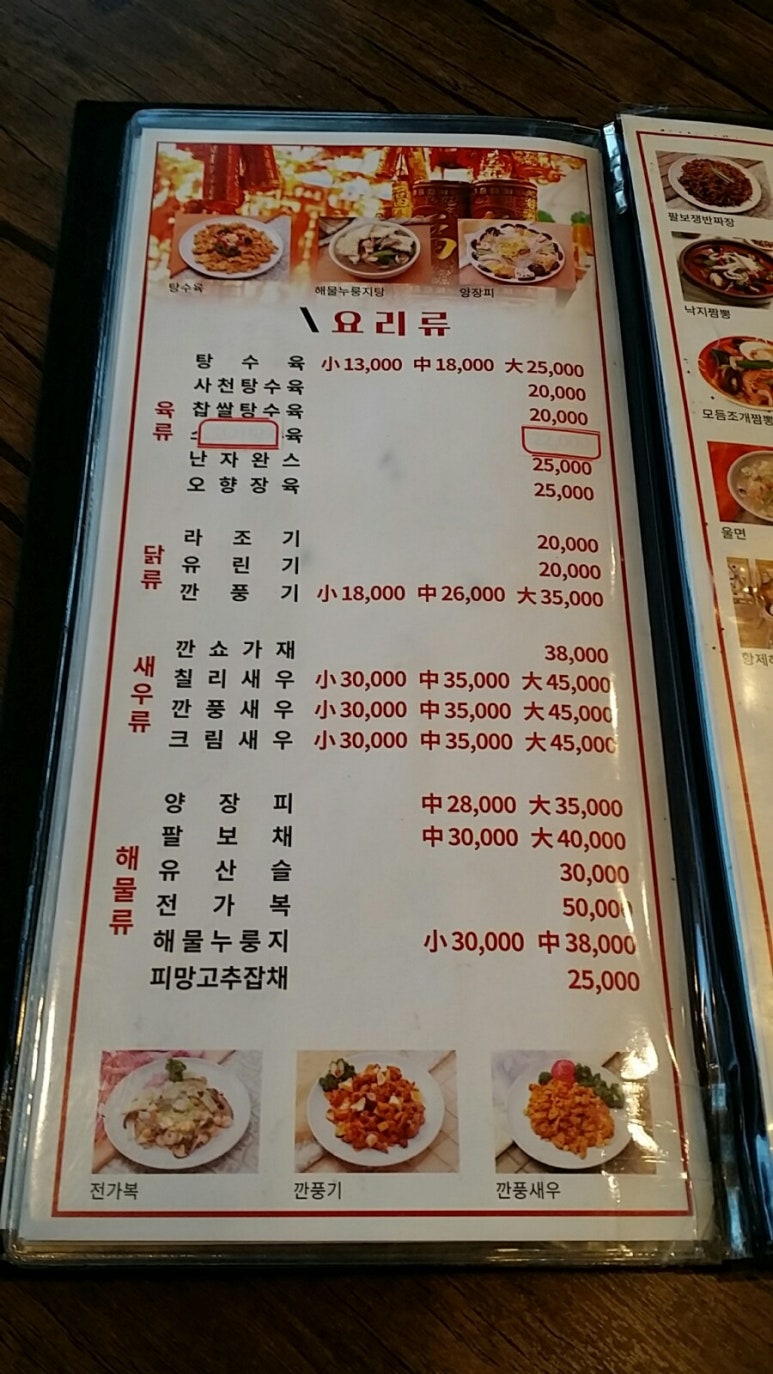 탕수육
해물누룽지탕
양장피
\요리류
육류
탕수육 小13,000 中18,000 大25,000
사천탕수육 20,000
찹쌀탕수육 20,000
육
난자완스 25,000
오향장육 25,000
닭류
라조기 20,000
유린기 20,000
깐풍기 小18,000 中26,000 大35,000
새우류
깐쇼가재 38,000
칠리새우 小30,000 中35,000 大45,000
깐풍새우 小30,000 中35,000 大45,000
크림새우 小30,000 中35,000 大45,000
해물류
양장피 中28,000 大35,000
팔보채 中30,000 大40,000
유산슬 30,000
전가복 50,000
해물누룽지 小30,000 中38,000
피망고추잡채 25,000
전가복
깐풍기
깐풍새우
팔보쟁반짜장
낙지짬뽕
모듬조개짬뽕
울면